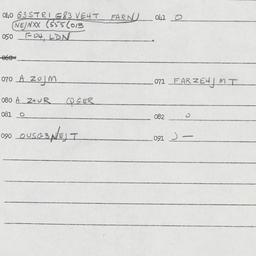 040 G3STRI G83VE4T FARNJ 041 0
(NEJNXX (555(013
050 FOU, LDN
060
070 A ZOJM 071 FARZE4J MT
080 A ZOUR QGER
081 0 082 0
090 OUSG3NEJT 091 J —